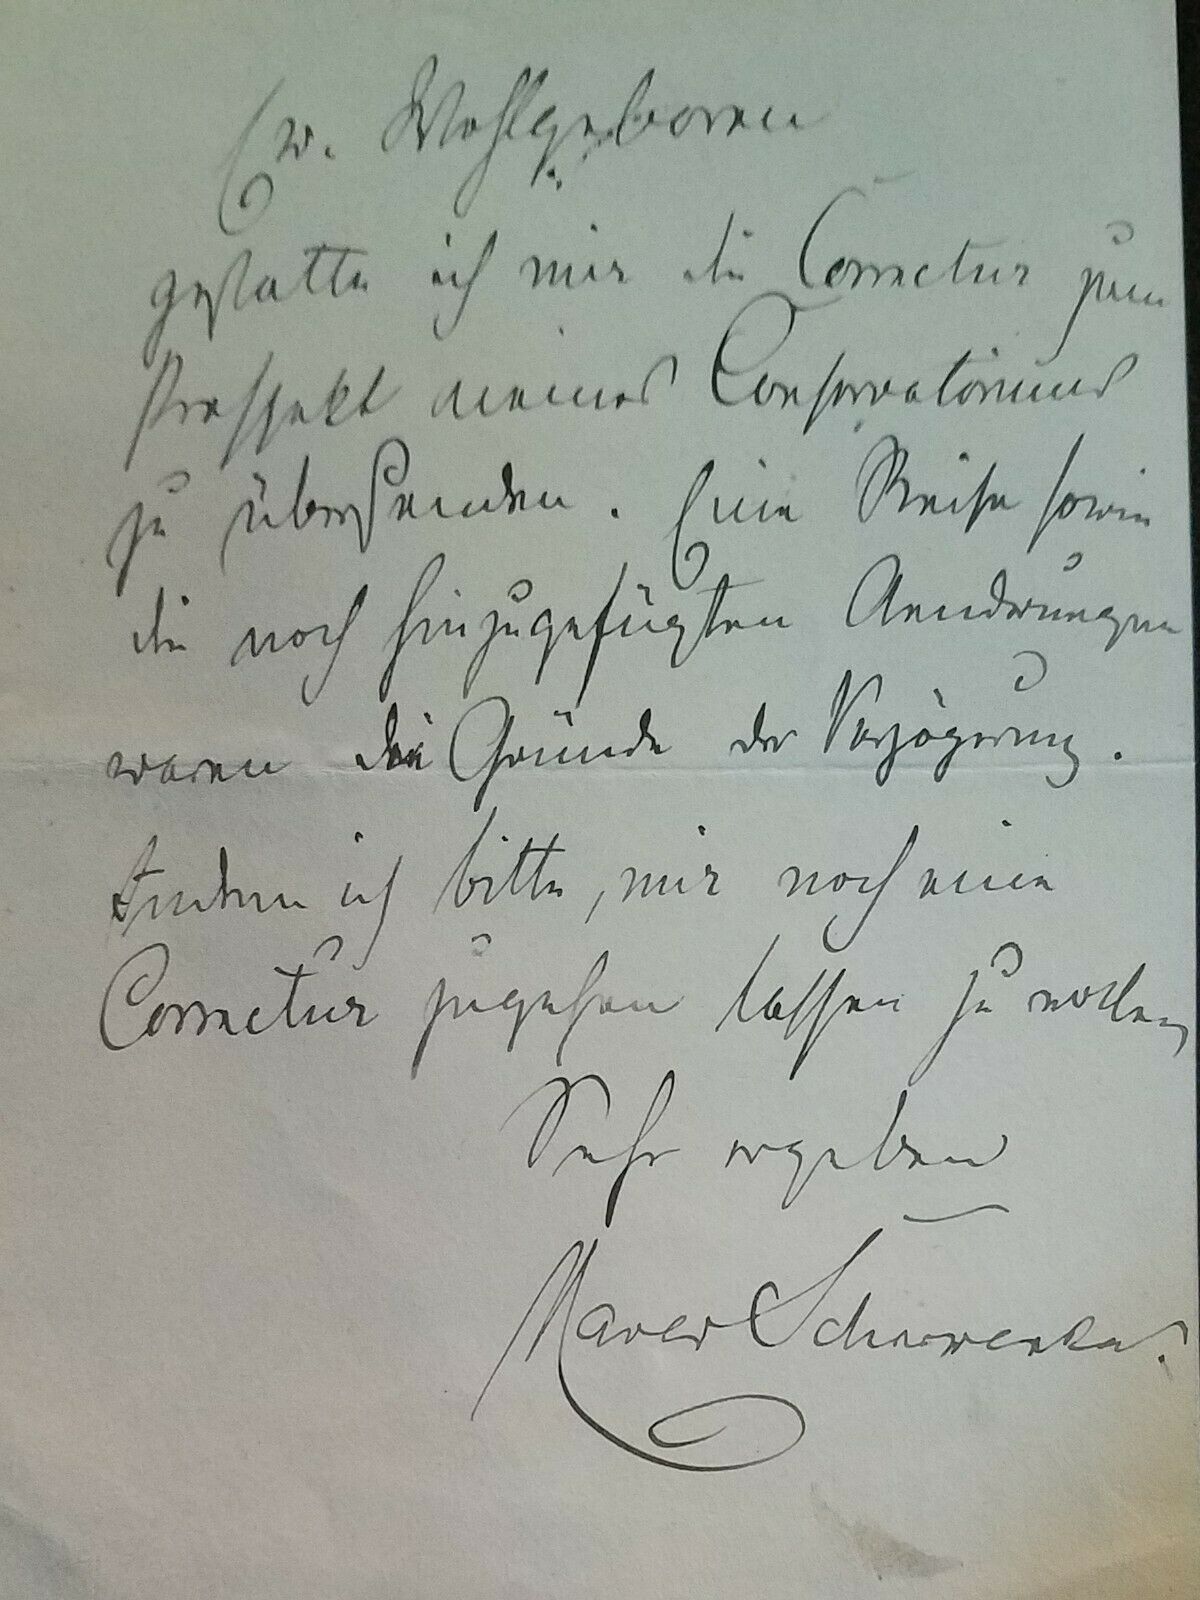 Ew. Wohlgeboren
gestatte ich mir die Correctur zum
Prospekt meines Conservatoriums
zu übersenden. Eine Reise sowie
die noch hinzugefügten Aenderungen
waren die Gründe der Verzögerung.
Indem ich bitte, mir noch eine
Correctur zugehen lassen zu wollen,
Sehr ergeben
Xaver Scharwenka.